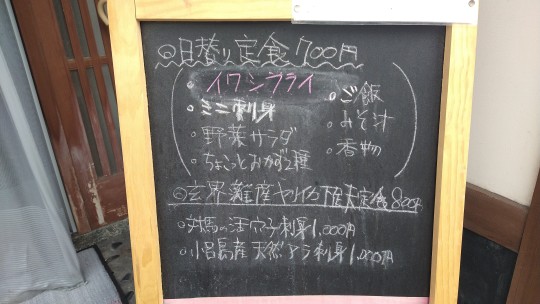 ◎日替り定食700円
・イワシフライ
・ミニ刺身
・野菜サラダ
・ちょこっとおかず2種
・ご飯
・みそ汁
・香物
◎玄界灘産ヤリイカ 定食800円
・対馬の活穴子刺身1,000円
・小呂島産天然アラ刺身1,000円